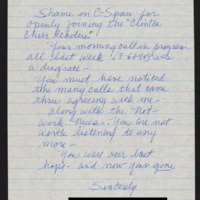 Shame on C-Span for
openly joining the "Clinton
Cheer Leaders"!
Your morning call in program
all last week was
a disgrace –
You must have noticed
the many calls that came
thru agreeing with me –
Along with the Net-
work News. You are not
worth listening to any
more –
You were our last
hope – and now your gone
Sincerely